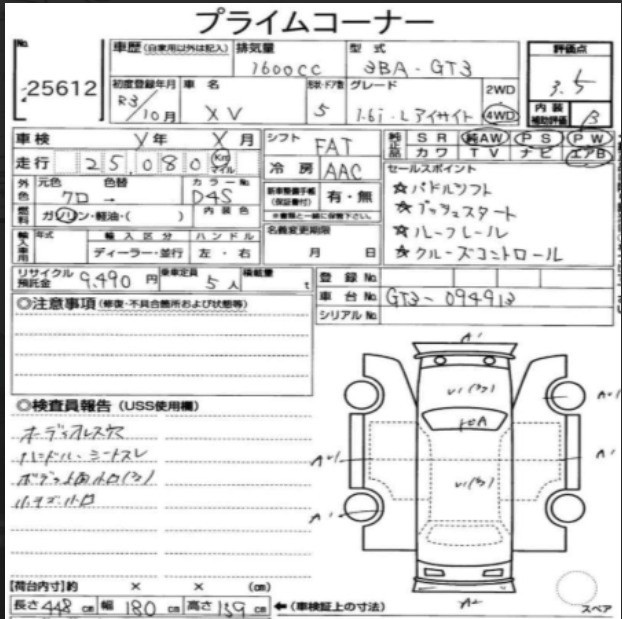 プライムコーナー
No. 25612
車歴 (自家用以外は記入) 排気量 1600cc 型式 3BA-GT3 評価点 3.5
初度登録年月 R3/10月 車名 XV 形状・ドア数 5 グレード 1.6i-L アイサイト 2WD 4WD 内装補助評価 B
車検 Y年 X月 シフト FAT 純正品 SR 純AW PS PW
走行 25,080 Km マイル 冷房 AAC カワ TV ナビ エアB
外色 元色 色替 カラーNo. クロ → D4S 新車整備手帳(保証書付) 有・無 セールスポイント
☆パドルシフト
燃料 ガソリン・軽油・( ) 内装色 ※書類と一緒に保管下さい。 ☆プッシュスタート
輸入車用 年式 輸入区分 ハンドル 名義変更期限 ☆ルーフレール
ディーラー・並行 左・右 月 日 ☆クルーズコントロール
リサイクル預託金 9,490円 乗車定員 5人 積載量 t 登録No.
車台No. GT3-094913
シリアルNo.
◎注意事項 (修復・不具合箇所および状態等)
A'
U1(3)
◎検査員報告 (USS使用欄)
オーディオレス穴
ハンドル・シートスレ
U1(3)
A'
A'
A2
【荷台内寸】約 × × (cm)
長さ 448 cm 幅 180 cm 高さ 159 cm ←(車検証上の寸法) スペア